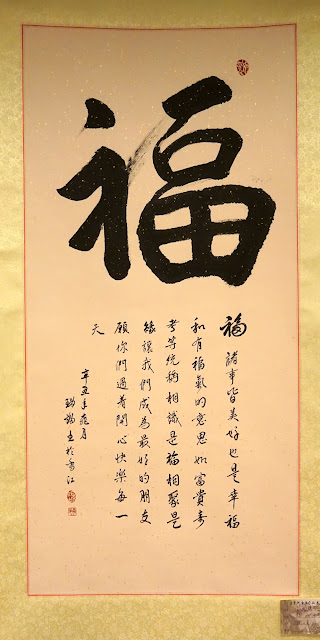 福
福 諸事皆美好也是幸福
和有福氣的意思如富貴壽
考等統稱相識是福相聚是
緣讓我們成為最好的朋友
願你們過着開心快樂每一
天
辛丑年月
書於香江